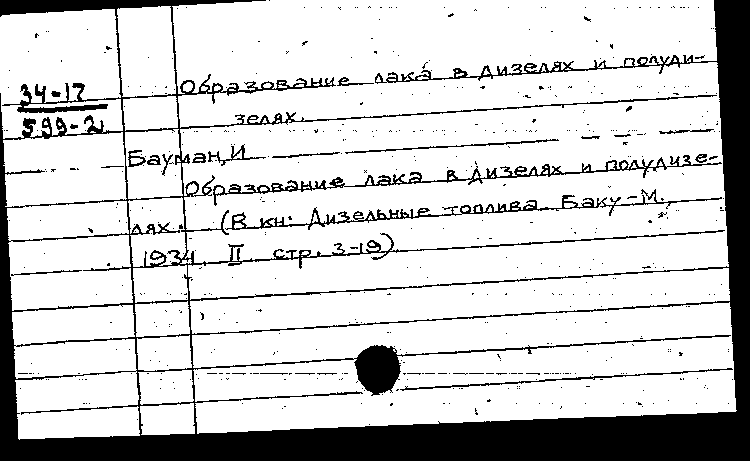 Образование лака в дизелях и полуди-
34-17
599-2
зелях.
Бауман, И
Образование лака в дизелях и полудизе-
лях. (В кн: Дизельные топлива. Баку-М.,
1934. II стр. 3-19)